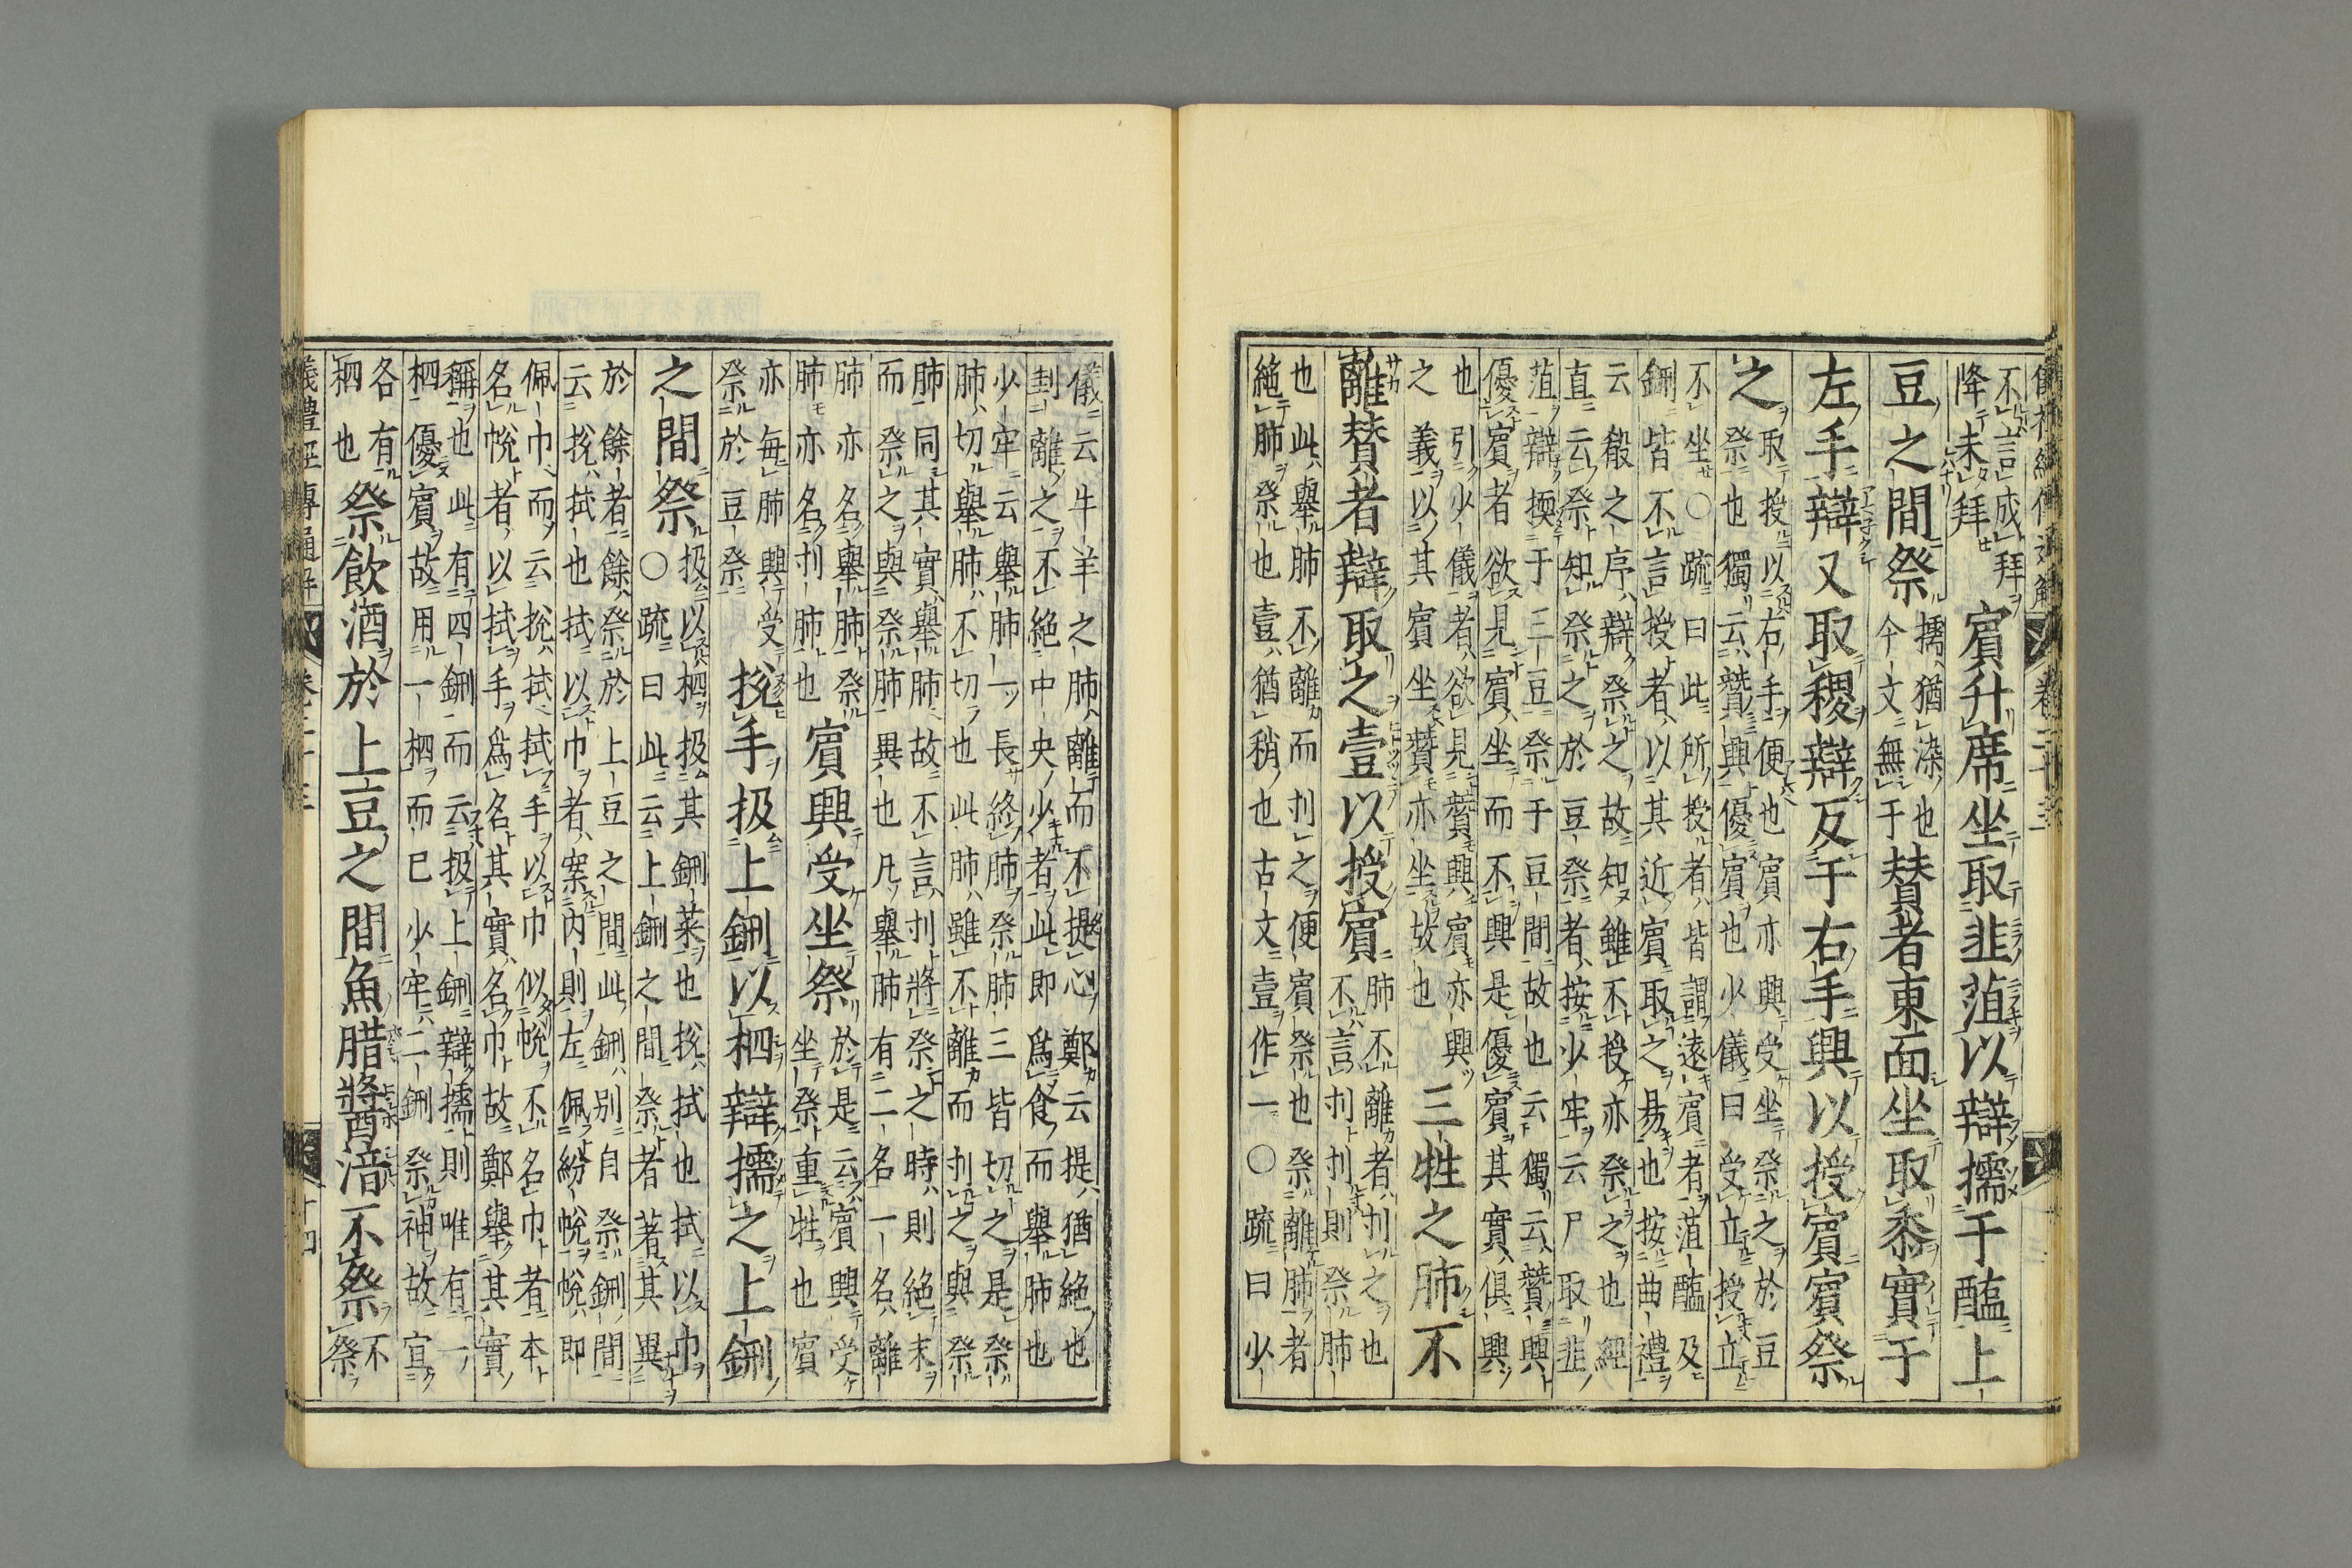 儀禮經傳通解 卷二十三
不言成拜
降未拜
賓升席坐取韭菹以辯擩于醢上
豆之間祭
擩猶染也
今文無于
贊者東面坐取黍實于
左手辯又取稷辯反于右手興以授賓賓祭
之
取授以右手便也賓亦興受坐祭之於豆
祭也獨云贊興優賓也少儀曰受立授立
不坐○疏曰此所授者皆謂遠賓者菹醢及
鉶皆不言授者以其近賓取之易也按曲禮
云殽之序辯祭之故知雖不授亦祭之也經
直云祭知祭之於豆祭者按少牢云尸取韭
菹辯擩于三豆祭于豆間故也云獨云贊興
優賓者欲見賓坐而不興是優賓其實俱興
也引少儀者欲見贊興賓亦興
之義以其賓坐贊亦坐故也
三牲之肺不
離贊者辯取之壹以授賓
肺不離者刌之也
不言刌刌則祭肺
也此舉肺不離而刌之便賓祭也祭離肺者
絶肺祭也壹猶稍也古文壹作一○疏曰少
儀云牛羊之肺離而不提心鄭云提猶絶也
刲離之不絶中央少者此即爲食而舉肺也
少牢云舉肺一長終肺祭肺三皆切之是祭
肺切舉肺不切也此肺雖不離而刌之與祭
肺同其實舉肺故不言刌將祭之時則絶末
而祭之與祭肺異也凡舉肺有二名一名離
肺亦名舉肺祭
肺亦名刌肺也
賓興受坐祭
於是云賓興受
坐祭重牲也賓
亦每肺興受
祭於豆祭
挩手扱上鉶以柶辯擩之上鉶
之間祭
扱以柶扱其鉶菜也挩拭也拭以巾
○疏曰此云上鉶之間祭者著其異
於餘者餘祭於上豆之間此鉶別自祭鉶間
云挩拭也拭以巾者案内則左佩紛帨帨即
佩巾而云挩拭拭手以巾似帨不名巾者本
名帨者以拭手爲名其實名巾故鄭舉其實
稱也此有四鉶而云扱上鉶辯擩則唯有一
柶優賓故用一柶而已少牢二鉶祭神故宜
各有
柶也
祭飲酒於上豆之間魚腊醬湆不祭
不
祭
儀禮經傳通解 卷二十三 十四